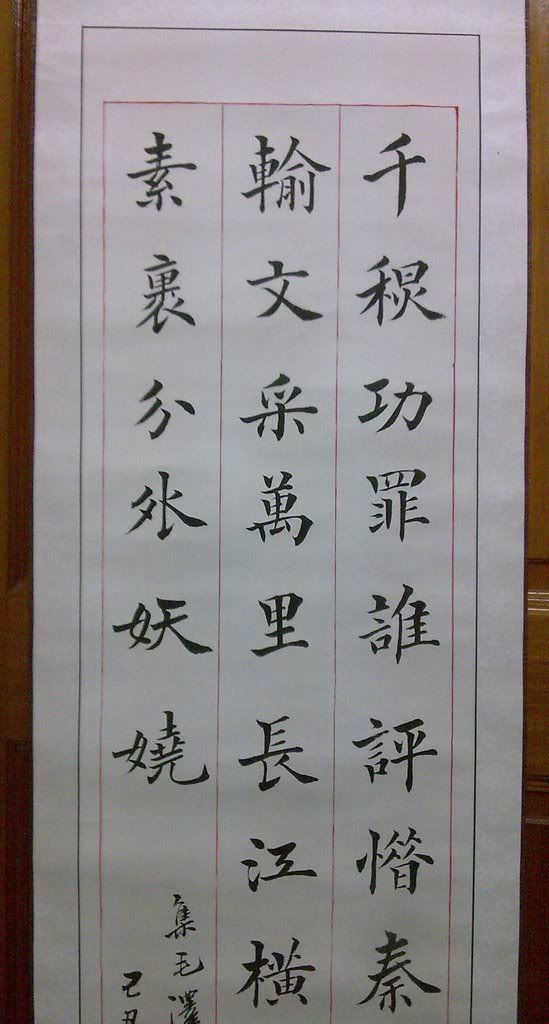 千秋功罪誰評惜秦
輸文采萬里長江橫
素裹分外妖嬈
集毛澤
己丑